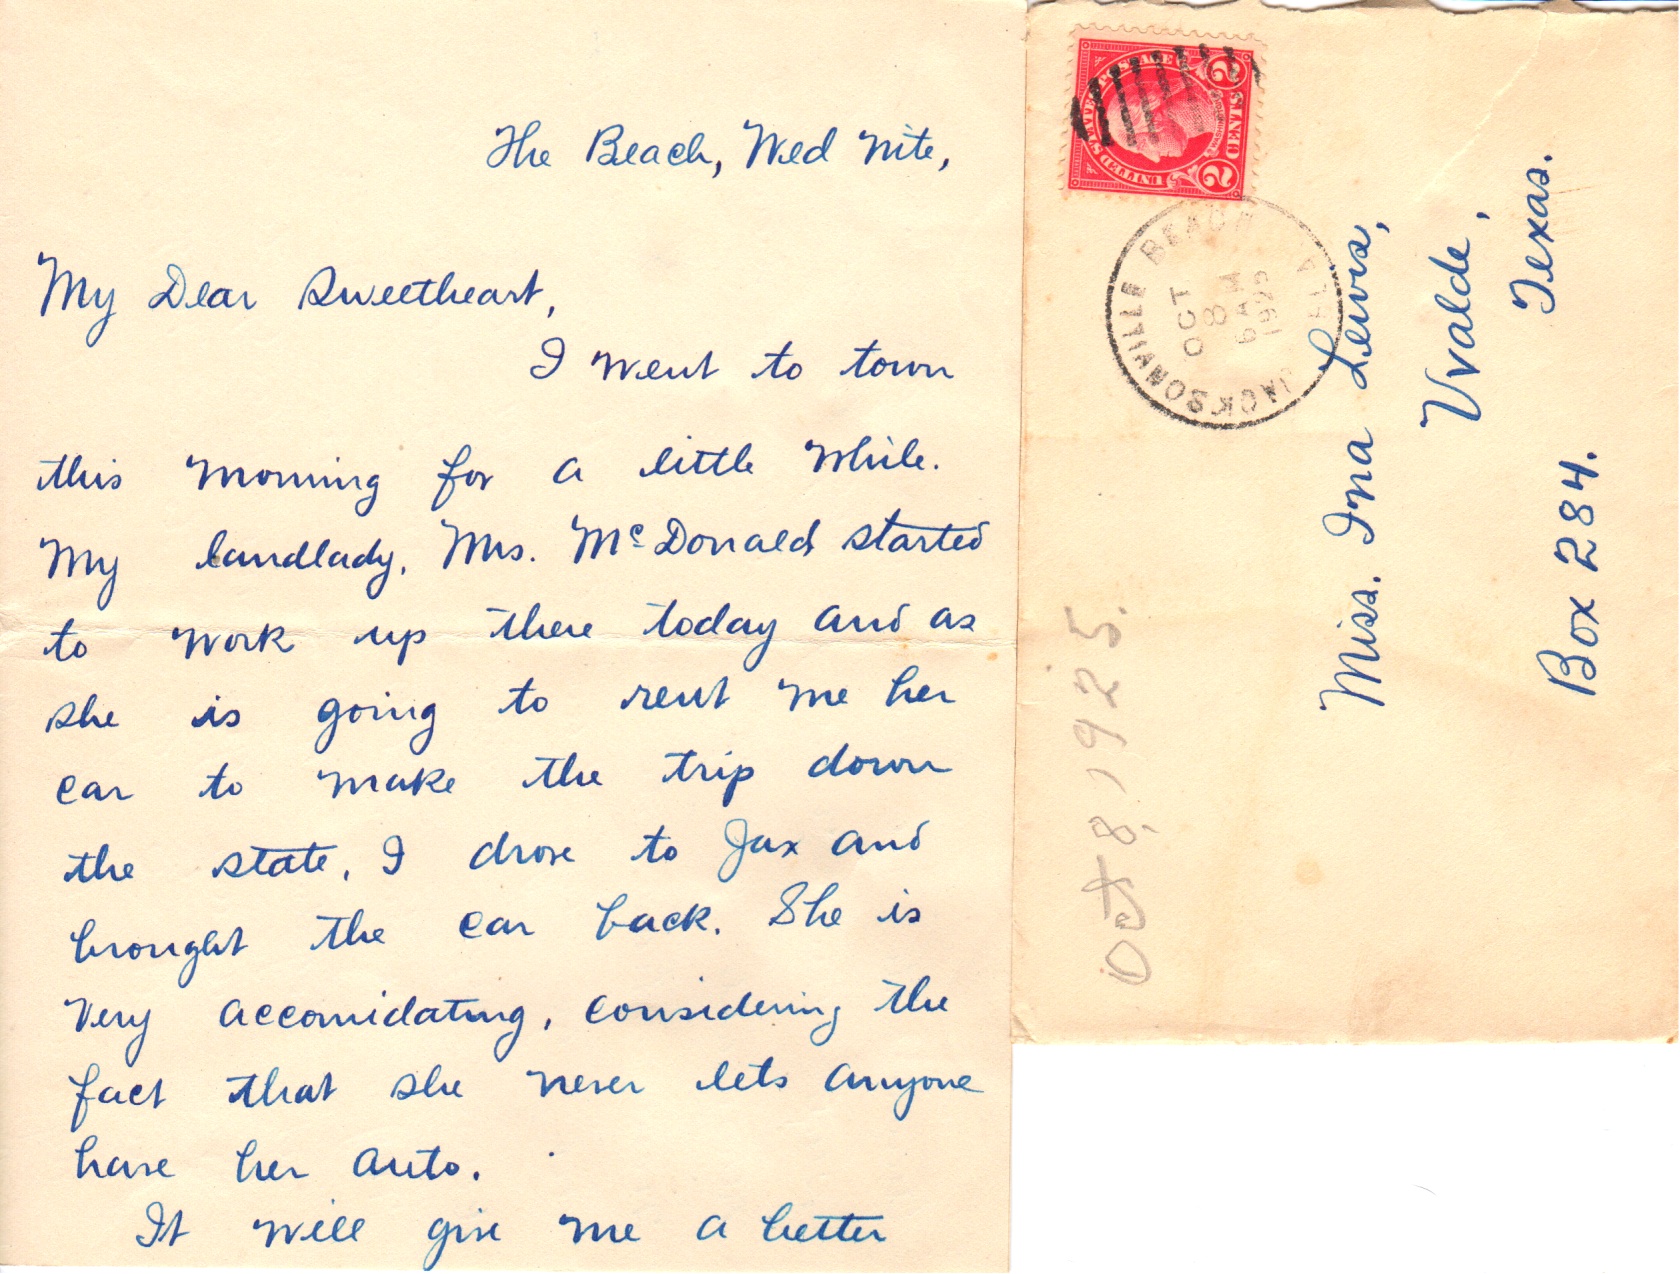 The Beach, Wed Nite,
My Dear Sweetheart,
I went to town
this morning for a little while.
My landlady, Mrs. McDonald started
to work up there today and as
she is going to rent me her
car to make the trip down
the state, I drove to Jax and
brought the car back. She is
very accomidating, considering the
fact that she never lets anyone
have her auto.
It will give me a better
UNITED STATES POSTAGE
2 CENTS 2
JACKSONVILLE BEACH FLA
OCT
8
6 AM
1925
Miss. Ina Lewis,
Uvalde,
Texas.
Box 284.
Oct 8, 1925.